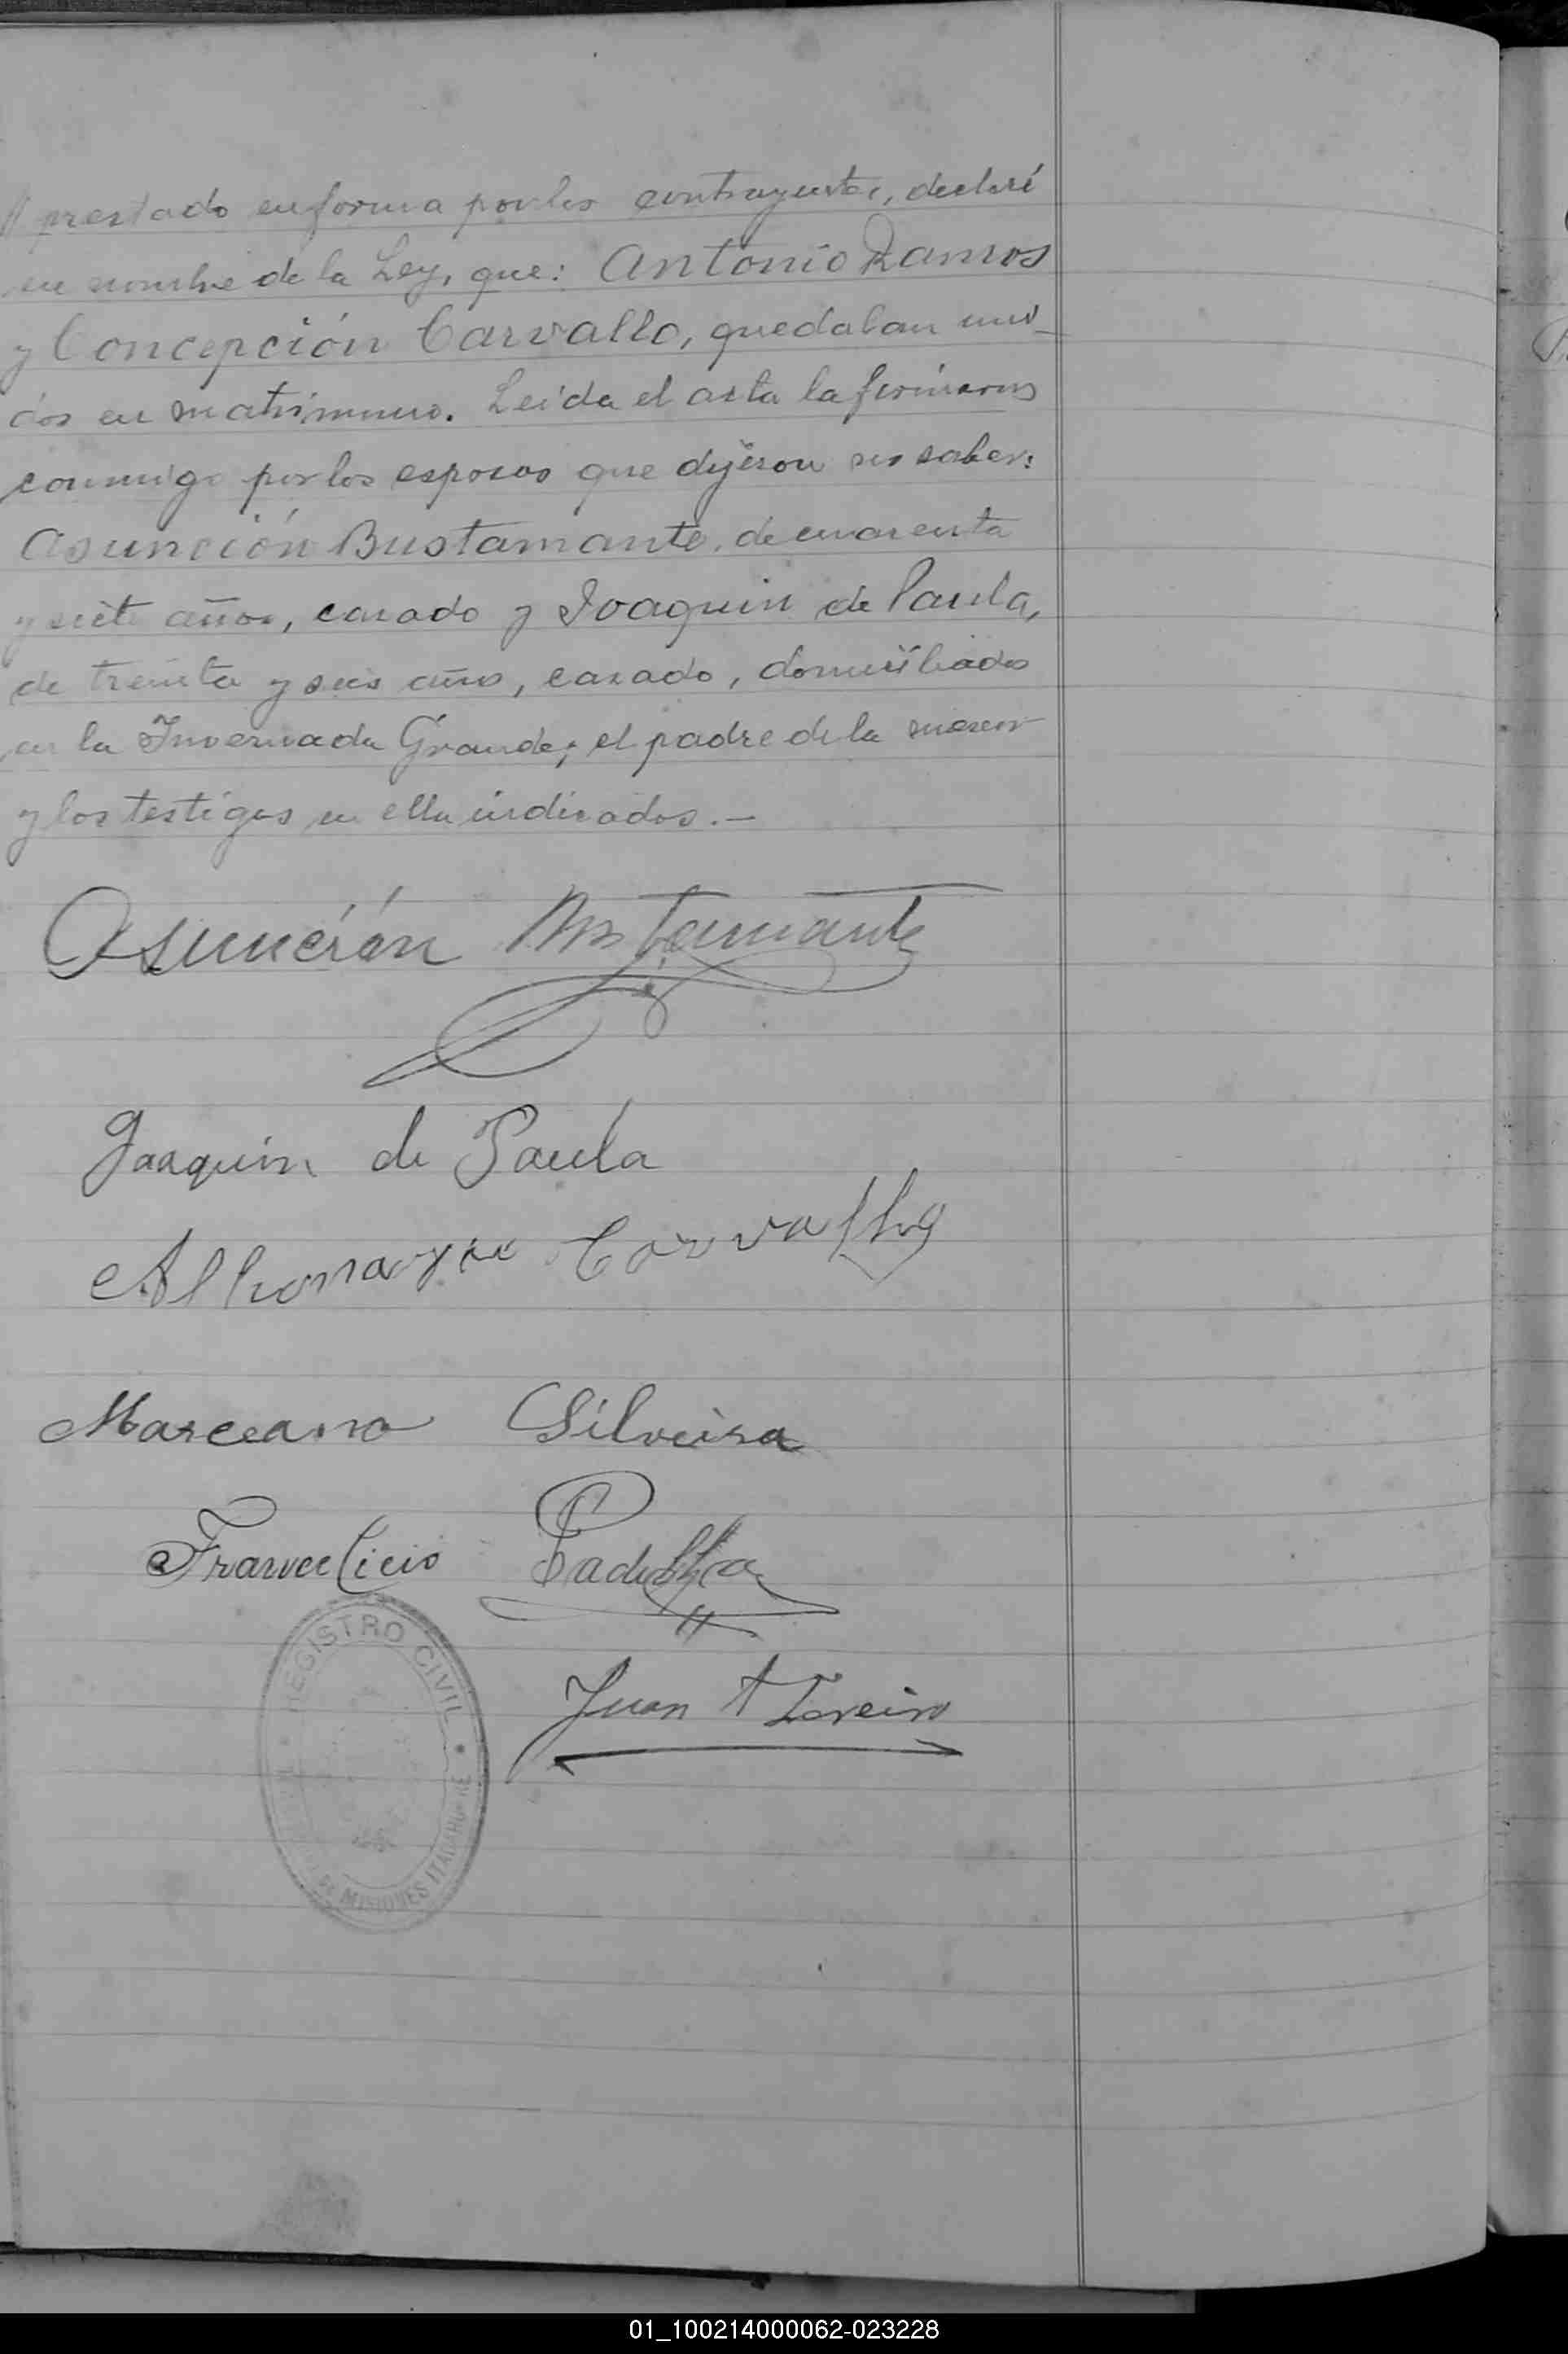 // prestado en forma por los contrayentes, declaré
en nombre de la Ley, que: Antonio Ramos
y Concepción Carvallo, quedaban uni-
dos en matrimonio. Leida el acta la firmaron
conmigo por los esposos que dijeron no saber:
Asunción Bustamante, de cuarenta
y siete años, casado y Joaquin de Paula,
de treinta y seis años, casado, domiciliados
en la Invernada Grande; el padre de la menor
y los testigos en ella indicados.—
Asunción Bustamante
Joaquin de Paula
Carvallo
Marceano Silveira
Francelicio Padilha
Juan A Loreiro
REGISTRO CIVIL
DE MISIONES ITACARUARE
01_100214000062-023228